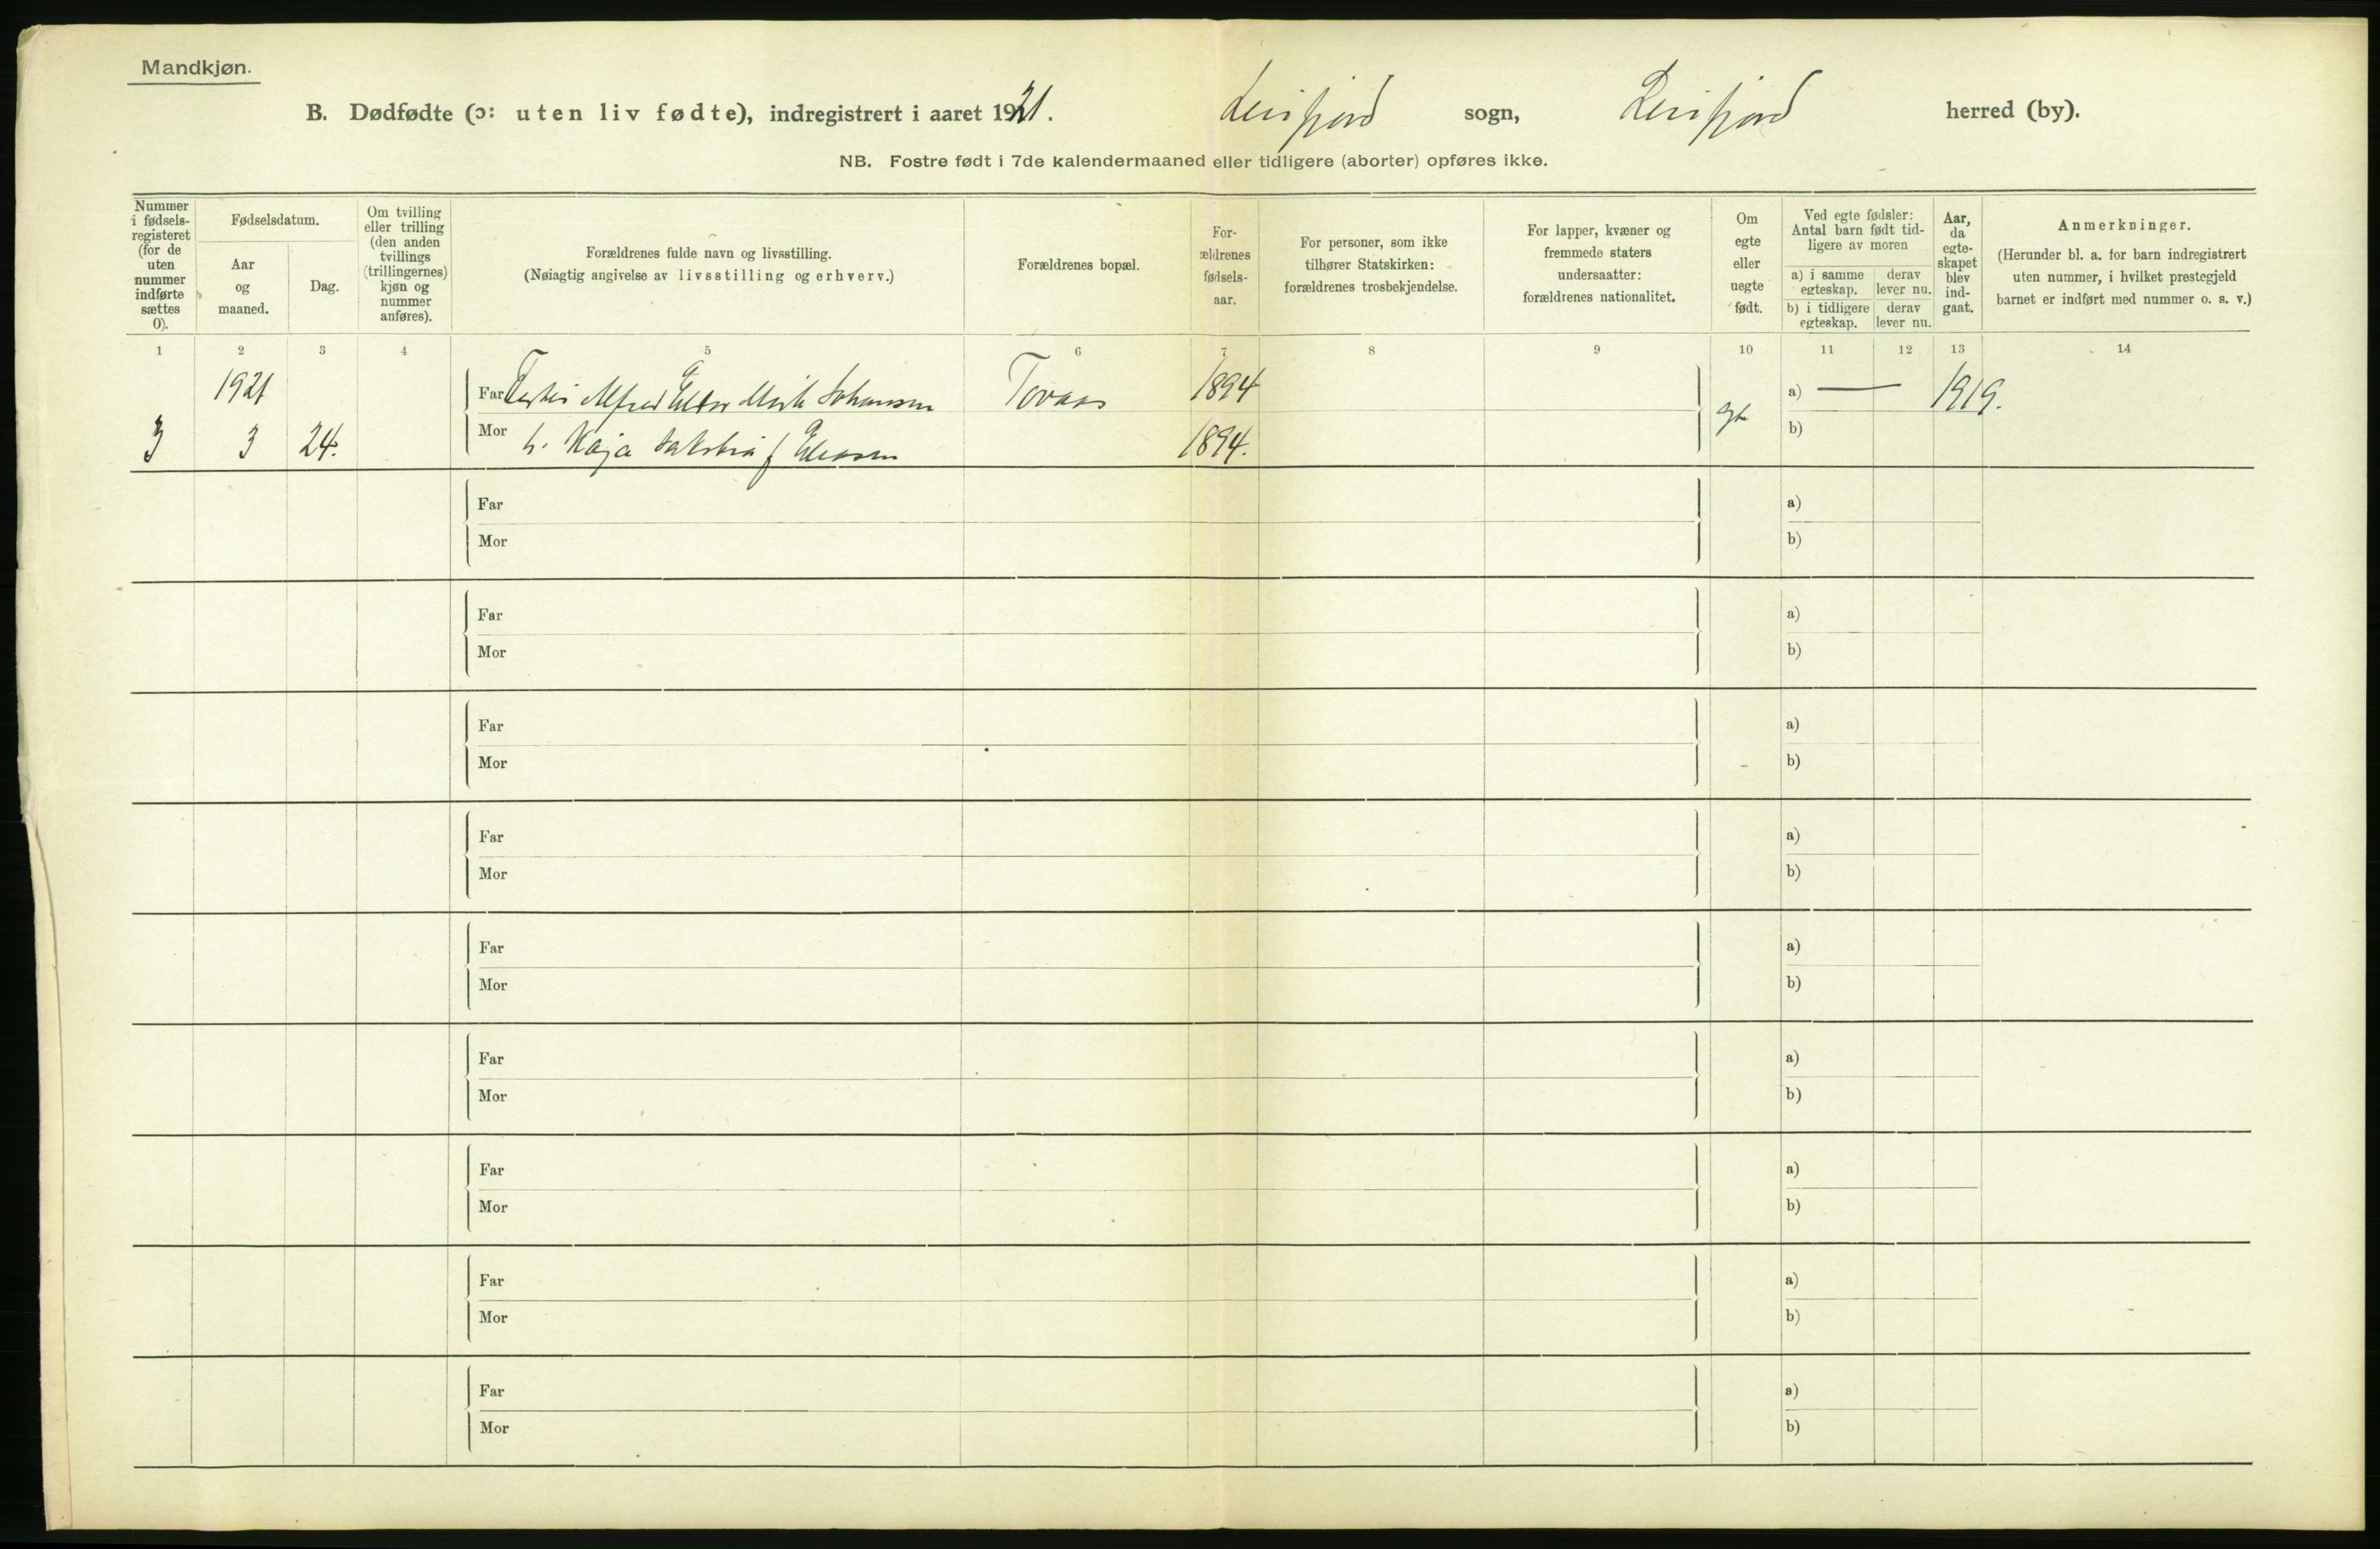 Mandkjøn.
B. Dødfødte (ɔ: uten liv fødte), indregistrert i aaret 1921. Leirfjord sogn, Leirfjord herred (by).
NB. Fostre født i 7de kalendermaaned eller tidligere (aborter) opføres ikke.
Nummer i fødsels-registeret (for de uten nummer indførte sættes 0).
Fødselsdatum.
Aar og maaned.
Dag.
Om tvilling eller trilling (den anden tvillings (trillingernes) kjøn og nummer anføres).
Forældrenes fulde navn og livsstilling.
(Nøiagtig angivelse av livsstilling og erhverv.)
Forældrenes bopæl.
For-ældrenes fødsels-aar.
For personer, som ikke tilhører Statskirken: forældrenes trosbekjendelse.
For lapper, kvæner og fremmede staters undersaatter: forældrenes nationalitet.
Om egte eller uegte født.
Ved egte fødsler: Antal barn født tid-ligere av moren
a) i samme egteskap.
derav lever nu.
b) i tidligere egteskap.
derav lever nu.
Aar, da egte-skapet blev ind-gaat.
Anmerkninger.
(Herunder bl. a. for barn indregistrert uten nummer, i hvilket prestegjeld barnet er indført med nummer o. s. v.)
1 2 3 4 5 6 7 8 9 10 11 12 13 14
1921 Far Alfred Johansen Tovaas 1894 egte a) — 1919.
3 3 24. Mor h. Kaja f. Eliasen 1894. b)
Far a)
Mor b)
Far a)
Mor b)
Far a)
Mor b)
Far a)
Mor b)
Far a)
Mor b)
Far a)
Mor b)
Far a)
Mor b)
Far a)
Mor b)
Far a)
Mor b)